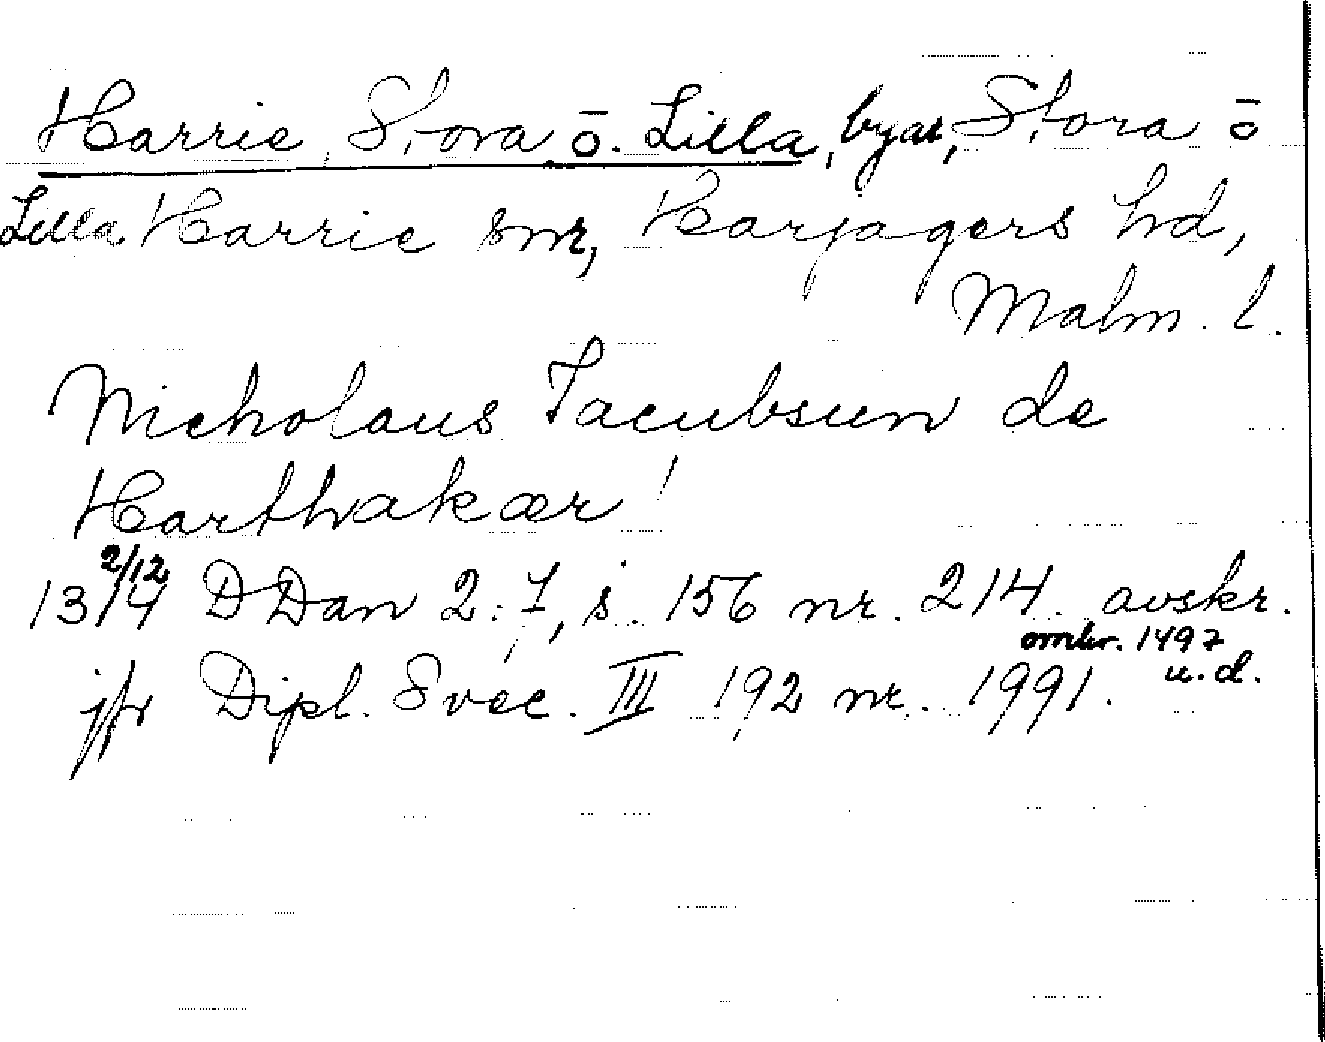 Harrie, Stora o. Lilla, byar, Stora o
Lilla Harrie snr, Harjagers hd,
Malm. l.
Nicholaus Iacubsun de
Harthakær!
2/12
1314 DDan 2:7, s. 156 nr. 214. avskr.
omkr. 1497
u.d.
jfr Dipl. Svec. III 192 nr. 1991.